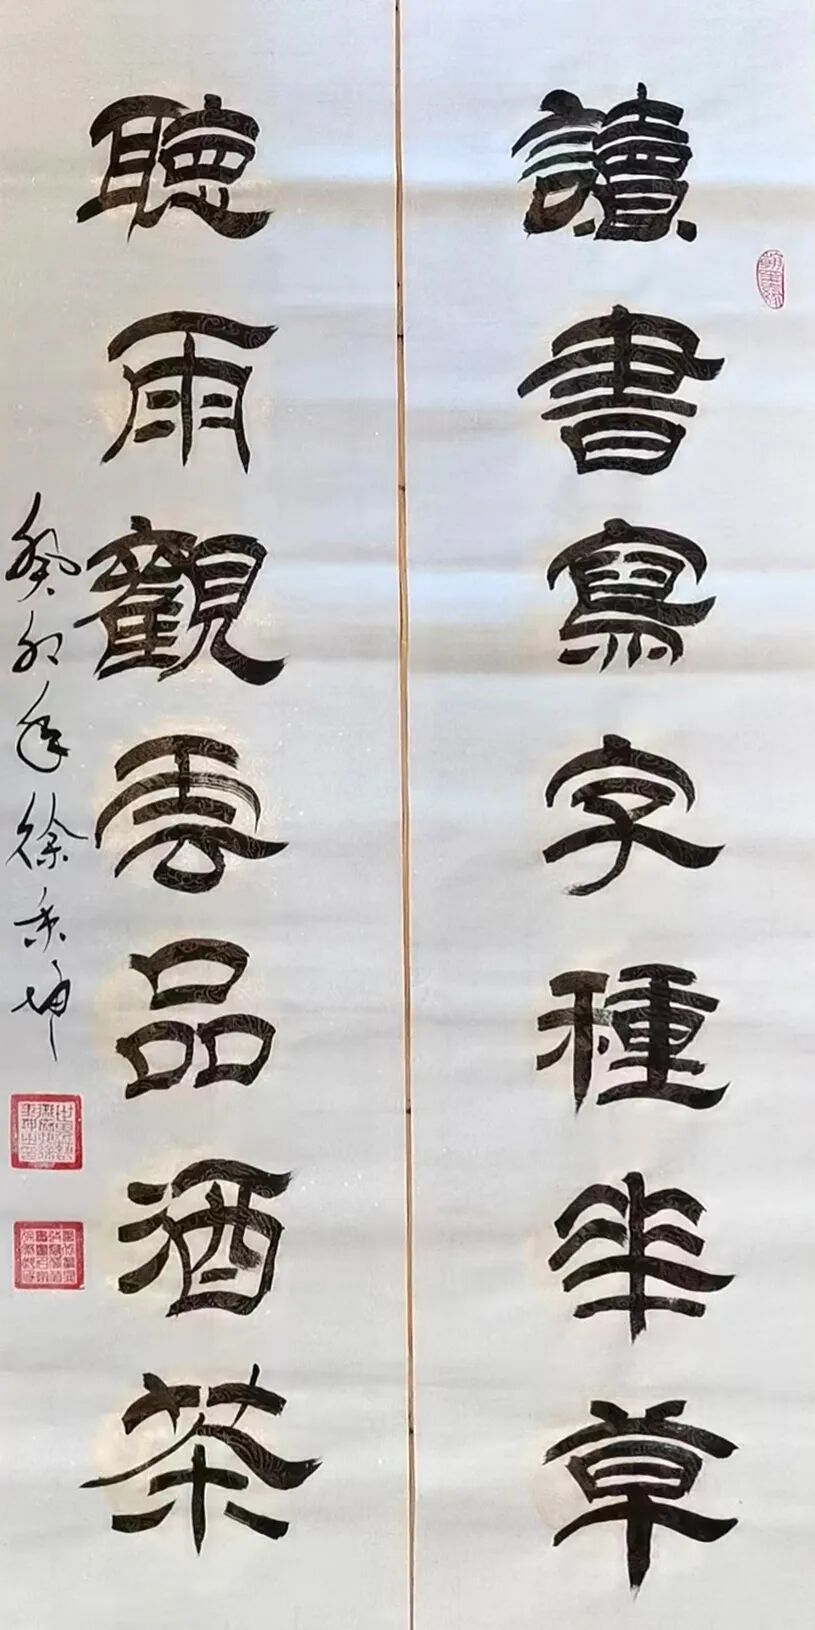 讀書寫字種華草
聽雨觀雲品酒茶
癸卯年徐秉坤